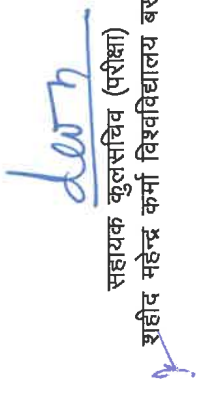 सहायक कुलसचिव (परीक्षा)
शहीद महेन्द्र कर्मा विश्वविद्यालय